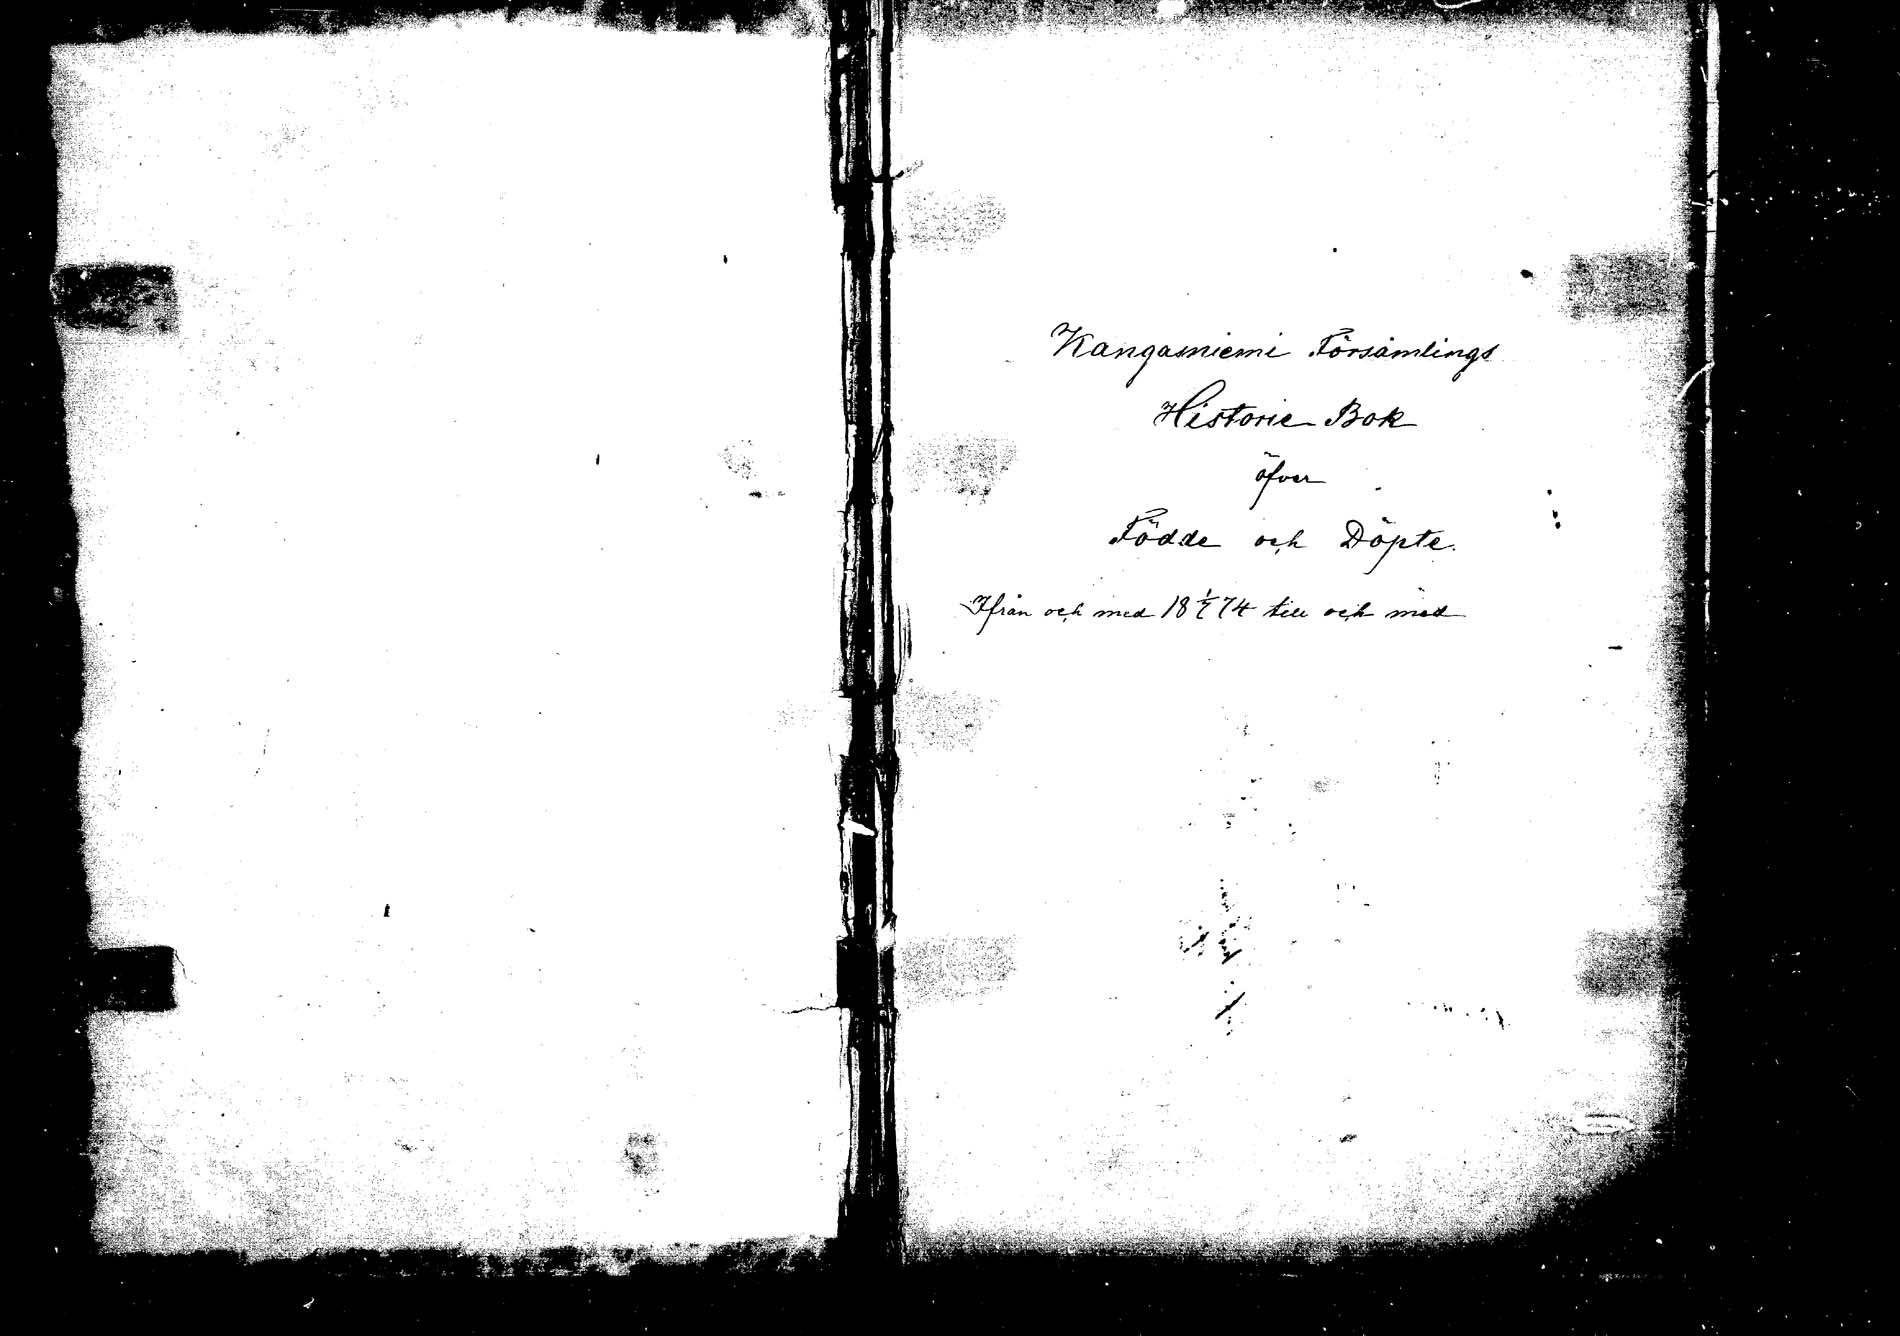 Kangasniemi Församlings
Historie Bok
öfver
Födde och Döpte.
Ifrån och med 18 1/7 74 till och med